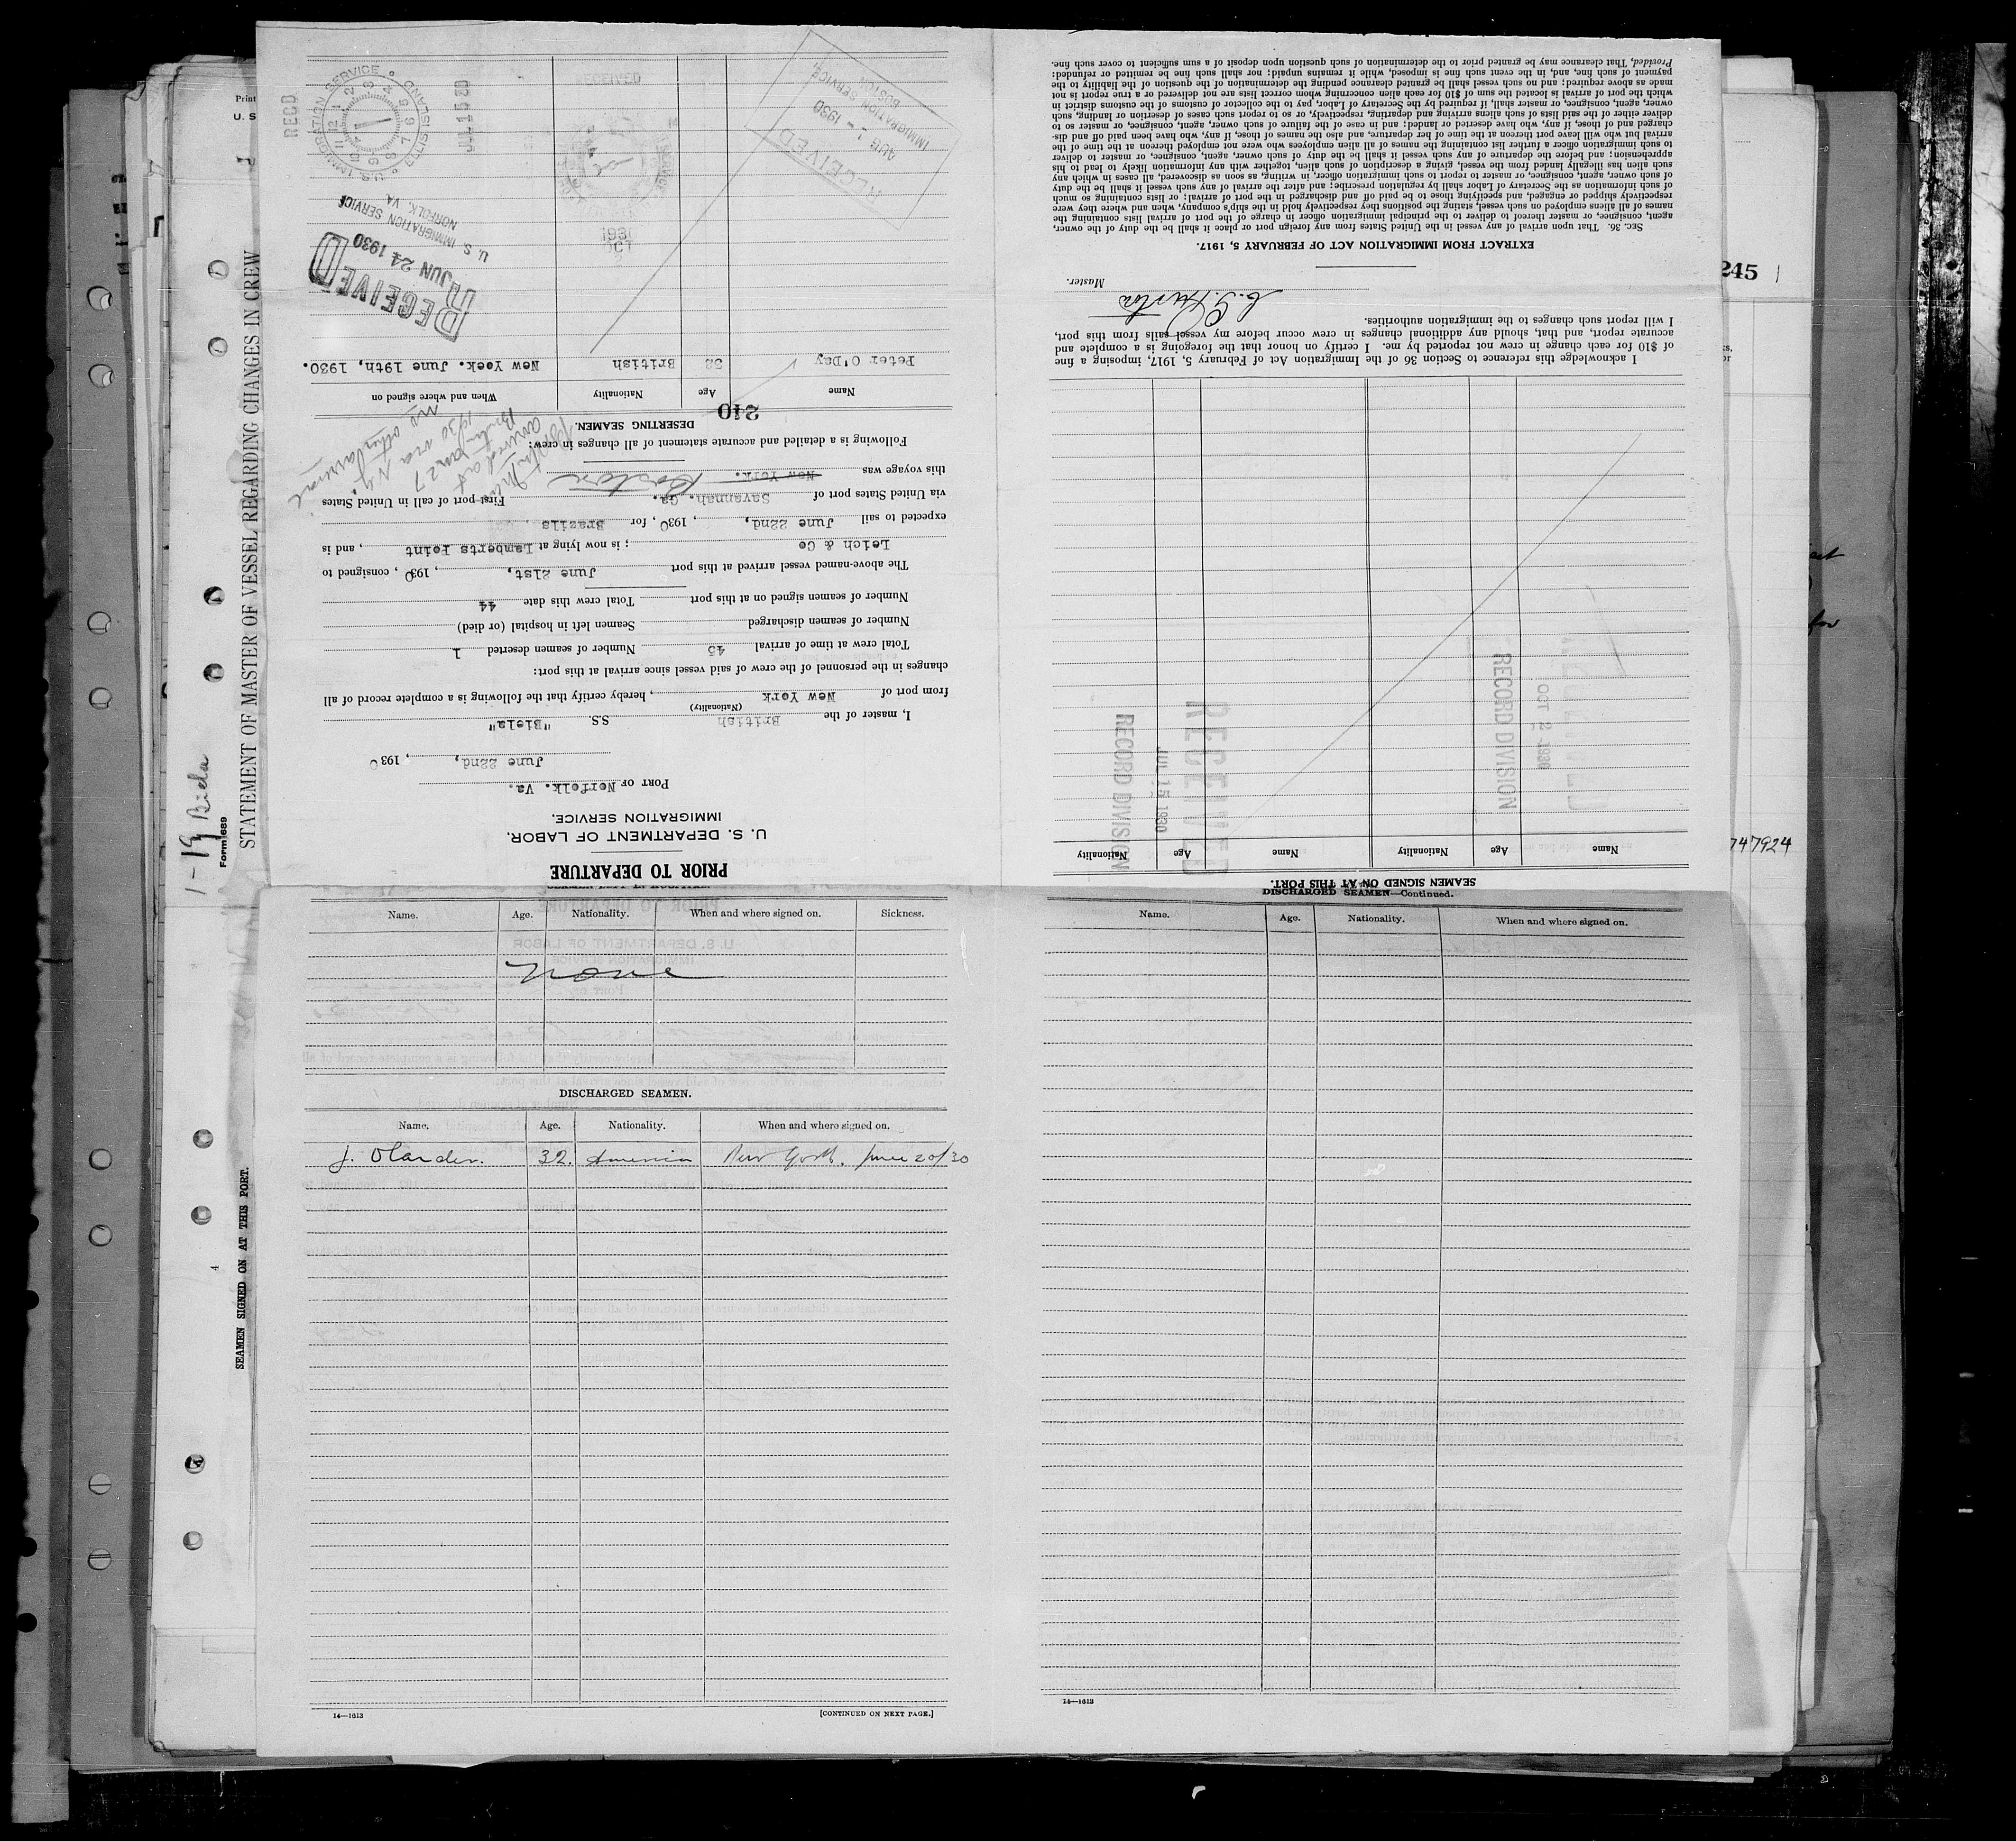 PRIOR TO DEPARTURE
U. S. DEPARTMENT OF LABOR
IMMIGRATION SERVICE.
PORT OF Norfolk. Va.
June 22nd, , 1930
I, master of the British S.S. "Biela"
(Nationality)
from port of New York , hereby certify that the following is a complete record of all
changes in the personnel of the crew of said vessel since arrival at this port:
Total crew at time of arrival 45 Number of seamen deserted 1
Number of seamen discharged Seamen left in hospital (or died)
Number of seamen signed on at this port Total crew this date 44
The above-named vessel arrived at this port June 21st, , 1930 , consigned to
Leich & Co ; is now lying at Lamberts Point , and is
expected to sail June 22nd, , 1930 , for Brazils
via United States port of Savannah. Ga. First port of call in United States
this voyage was New York. Boston
Following is a detailed and accurate statement of all changes in crew:
DESERTING SEAMEN.
240
Name Age Nationality When and where signed on
Peter O'Day 38 British New Yoek. June 19th, 1930.
arrived at
Boston Jan 27
1930 via N.Y.
no other arrival
RECEIVED
JUN 24 1930
U. S. IMMIGRATION SERVICE
NORFOLK, VA
U.S. IMMIGRATION SERVICE ELLIS ISLAND
REC'D
JUL 15 30
RECEIVED
AUG 1 - 1930
IMMIGRATION SERVICE
BOSTON
RECEIVED
1930
OCT
SEAMEN SIGNED ON AT THIS PORT.
Name Age Nationality Name Age Nationality
RECEIVED
JUL 15 1930
RECORD DIVISION
OCT 2 1930
RECORD DIVISION
I acknowledge this reference to Section 36 of the Immigration Act of February 5, 1917, imposing a fine
of $10 for each change in crew not reported by me. I certify on honor that the foregoing is a complete and
accurate report, and that, should any additional changes in crew occur before my vessel sails from this port,
I will report such changes to the immigration authorities.
Master.
EXTRACT FROM IMMIGRATION ACT OF FEBRUARY 5, 1917.
SEC. 36. That upon arrival of any vessel in the United States from any foreign port or place it shall be the duty of the owner,
agent, consignee, or master thereof to deliver to the principal immigration officer in charge of the port of arrival lists containing the
names of all aliens employed on such vessel, stating the positions they respectively hold in the ship's company, when and where they were
respectively shipped or engaged, and specifying those to be paid off and discharged in the port of arrival; or lists containing so much
of such information as the Secretary of Labor shall by regulation prescribe; and after the arrival of any such vessel it shall be the duty
of such owner, agent, consignee, or master to report to such immigration officer, in writing, as soon as discovered, all cases in which any
such alien has illegally landed from the vessel, giving a description of such alien, together with any information likely to lead to his
apprehension; and before the departure of any such vessel it shall be the duty of such owner, agent, consignee, or master to deliver
to such immigration officer a further list containing the names of all alien employees who were not employed thereon at the time of the
arrival but who will leave port thereon at the time of her departure, and also the names of those, if any, who have been paid off and dis-
charged and of those, if any, who have deserted or landed; and in case of the failure of such owner, agent, consignee, or master so to
deliver either of the said lists of such aliens arriving and departing, respectively, or so to report such cases of desertion or landing, such
owner, agent, consignee, or master, shall, if required by the Secretary of Labor, pay to the collector of customs of the customs district in
which the port of arrival is located the sum of $10 for each alien concerning whom correct lists are not delivered or a true report is not
made as above required; and no such vessel shall be granted clearance pending the determination of the question of the liability to the
payment of such fine, and, in the event such fine is imposed, while it remains unpaid; nor shall such fine be remitted or refunded:
Provided, That clearance may be granted prior to the determination of such question upon deposit of a sum sufficient to cover such fine.
Name. Age. Nationality. When and where signed on. Sickness.
None
DISCHARGED SEAMEN.
Name. Age. Nationality. When and where signed on.
J. Olander. 32. America New York. June 20/30
14—1613 [CONTINUED ON NEXT PAGE.]
DISCHARGED SEAMEN—Continued.
Name. Age. Nationality. When and where signed on.
14—1613
STATEMENT OF MASTER OF VESSEL REGARDING CHANGES IN CREW
Form 689
1-19 Biela
SEAMEN SIGNED ON AT THIS PORT.
4
Print
U. S
245
747924
for